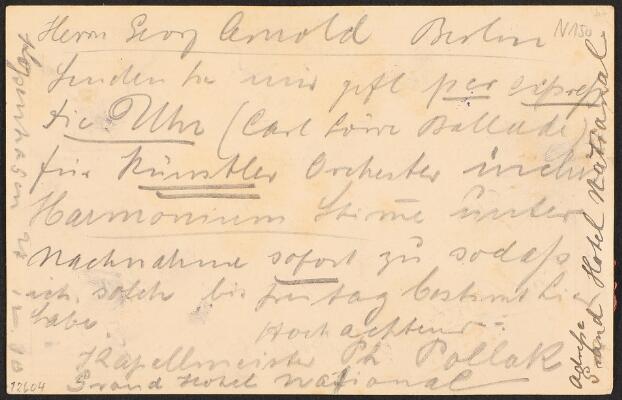 Herrn Georg Arnold Berlin
N150
Senden Sie mir gefl per express
die Uhr (Carl Löwe Ballade)
für Künstler Orchester inclu
Harmonium Stimme unter
Nachnahme sofort zu sodaß
ich solche bis Freitag bestimt hier
habe.
Hochachtend:
Kapellmeister Ph Pollak
Grand Hotel National
12604
Adresse
Grand Hotel National
Kopenhagen